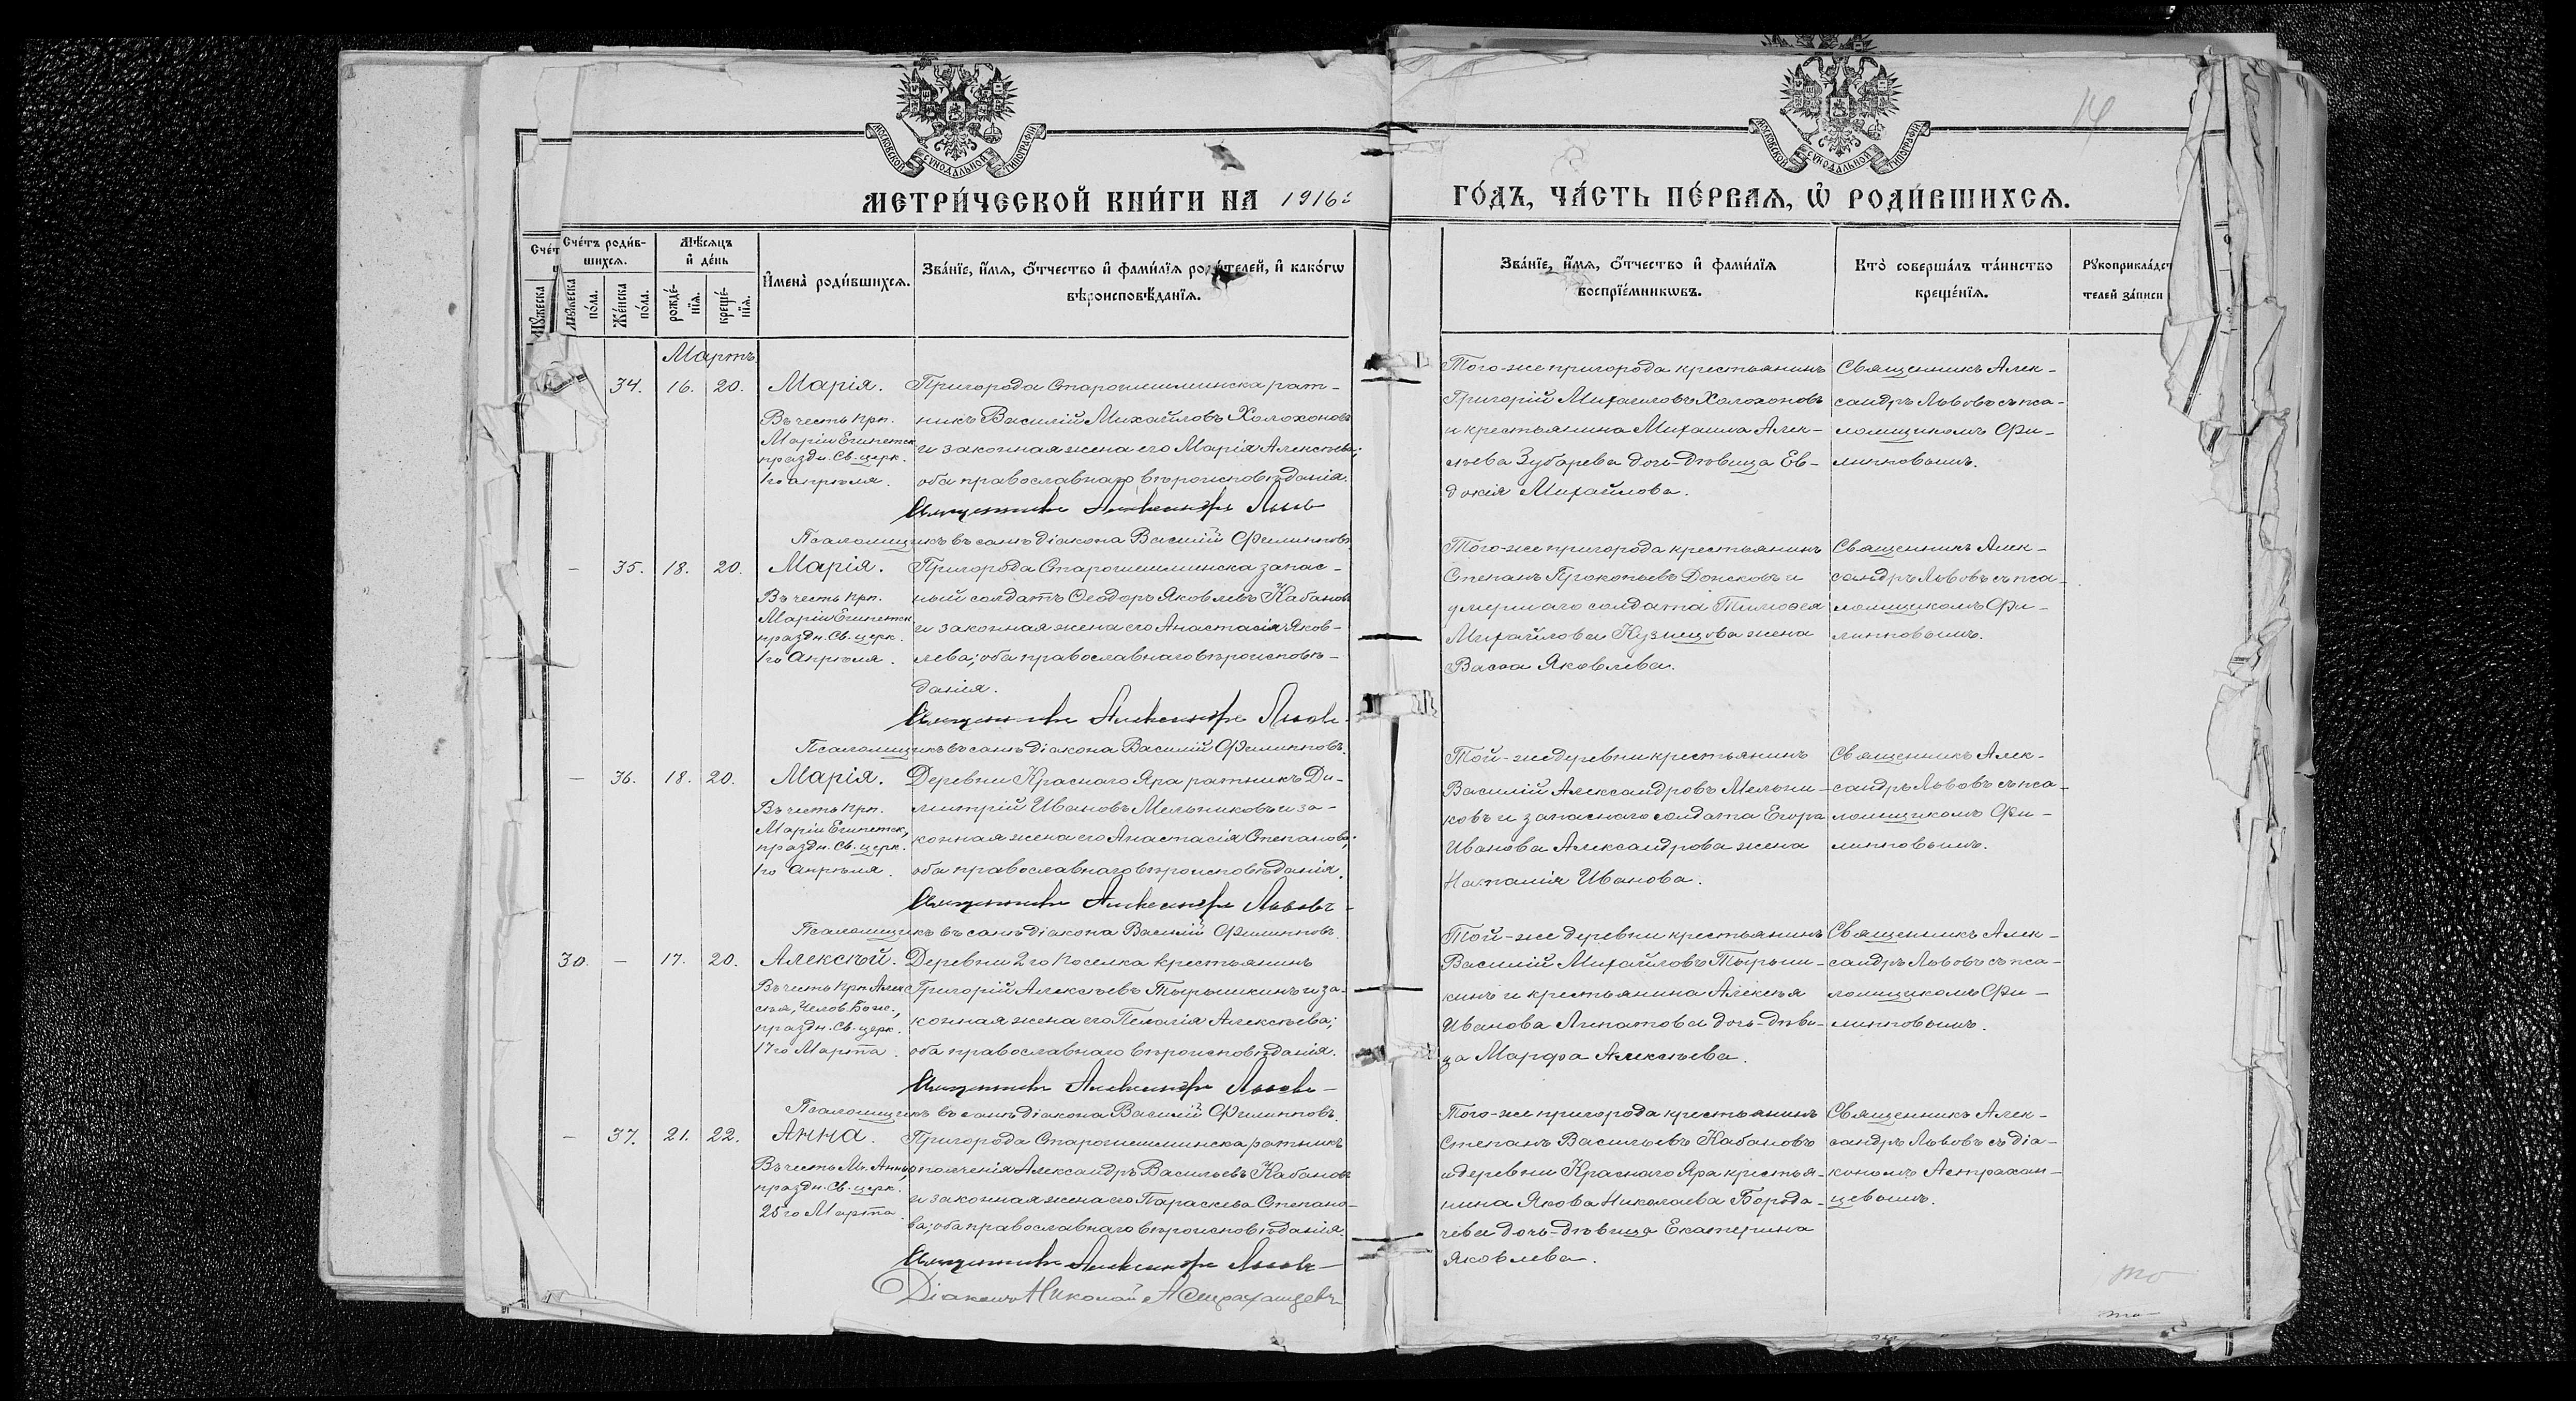 14
МОСКОВСКОЙ СѴНОДАЛЬНОЙ ТИПОГРАФІИ
МОСКОВСКОЙ СѴНОДАЛЬНОЙ ТИПОГРАФІИ
МЕТРИ́ЧЕСКОЙ КНИ́ГИ НА 1916 г.
ГО́ДЪ, ЧА́СТЬ ПЕ́РВАЯ, Ѡ РОДИ́ВШИХСЯ.
Сче́тъ роди́в-
шихся.
Мꙋ́жеска по́ла.
Же́нска по́ла.
Мѣ́сяцъ и де́нь
рожде́-
нїя.
креще́-
нїя.
И҆мена̀ роди́вшихся.
Зва́нїе, и҆́мя, ѻ҆́тчество и҆ фами́лїя роди́телей, и҆ како́гѡ
вѣроисповѣ́данїя.
Зва́нїе, и҆́мя, ѻ҆́тчество и҆ фами́лїя
воспрїе́мникѡвъ.
Кто̀ соверша́лъ та́инство
креще́нїя.
Рꙋкоприкла́дст
телей за́писи
Мартъ
34. 16. 20. Марія.
Въ честь прп.
Маріи Египетск.
праздн. Св. церк.
1го апрѣля.
Пригорода Старошешминска рат-
никъ Василій Михайловъ Холохоновъ
и законная жена его Марія Алексѣева;
оба православнаго вѣроисповѣданія.
Священникъ Александръ Львовъ
Псаломщикъ въ санѣ діакона Василій Филипповъ
Того-же пригорода крестьянинъ
Григорій Михаиловъ Холохоновъ
и крестьянина Михаила Алек-
сѣева Зубарева дочь-дѣвица Ев-
докія Михайлова.
Священникъ Алек-
сандръ Львовъ съ пса-
ломщикомъ Фи-
липповымъ.
– 35. 18. 20. Марія.
Въ честь прп.
Маріи Египетск.
праздн. Св. церк.
1го Апрѣля.
Пригорода Старошешминска запас-
ный солдатъ Ѳеодоръ Яковлевъ Кабановъ
и законная жена его Анастасія Яков-
лева; оба православнаго вѣроисповѣ-
данія.
Священникъ Александръ Львовъ
Псаломщикъ въ санѣ діакона Василій Филипповъ.
Того-же пригорода крестьянинъ
Степанъ Прокопьевъ Донсковъ и
умершаго солдата Тимоѳея
Михайлова Кузнецова жена
Васса Яковлева.
Священникъ Алек-
сандръ Львовъ съ пса-
ломщикомъ Фи-
липповымъ.
– 36. 18. 20. Марія.
Въ честь прп.
Маріи Египетск.,
праздн. Св. церк.
1го Апрѣля.
Деревни Краснаго Яра ратникъ Ди-
митрій Ивановъ Мельниковъ и за-
конная жена его Анастасія Степанова;
оба православнаго вѣроисповѣданія.
Священникъ Александръ Львовъ
Псаломщикъ въ санѣ діакона Василій Филипповъ.
Той-же деревни крестьянинъ
Василій Александровъ Мельни-
ковъ и запаснаго солдата Егора
Иванова Александрова жена
Наталія Иванова.
Священникъ Алек-
сандръ Львовъ съ пса-
ломщикомъ Фи-
липповымъ.
30. – 17. 20. Алексѣй.
Въ честь прп. Алек
сѣя, Челов. Бож.,
праздн. Св. церк.
17го Марта.
Деревни 2го поселка крестьянинъ
Григорій Алексѣевъ Тырышкинъ и за-
конная жена его Пелагія Алексѣева;
оба православнаго вѣроисповѣданія.
Священникъ Александръ Львовъ
Псаломщикъ въ санѣ діакона Василій Филипповъ.
Той-же деревни крестьянинъ
Василій Михайловъ Тырыш-
кинъ и крестьянина Алексѣя
Иванова Липатова дочь-дѣви-
ца Марфа Алексѣева.
Священникъ Алек-
сандръ Львовъ съ пса-
ломщикомъ Фи-
липповымъ.
– 37. 21. 22. Анна.
Въ честь Мц. Анны,
праздн. Св. церк.
26го Марта.
Пригорода Старошешминска ратникъ
ополченія Александръ Васильевъ Кабановъ
и законная жена его Параскева Степано-
ва; оба православнаго вѣроисповѣданія.
Священникъ Александръ Львовъ
Діаконъ Николай Астраханцевъ
Того-же пригорода крестьянинъ
Степанъ Васильевъ Кабановъ
и деревни Краснаго Яра крестья-
нина Якова Николаева Борода-
чева дочь-дѣвица Екатерина
Яковлева.
Священникъ Алек-
сандръ Львовъ съ діа-
кономъ Астрахан-
цевымъ.